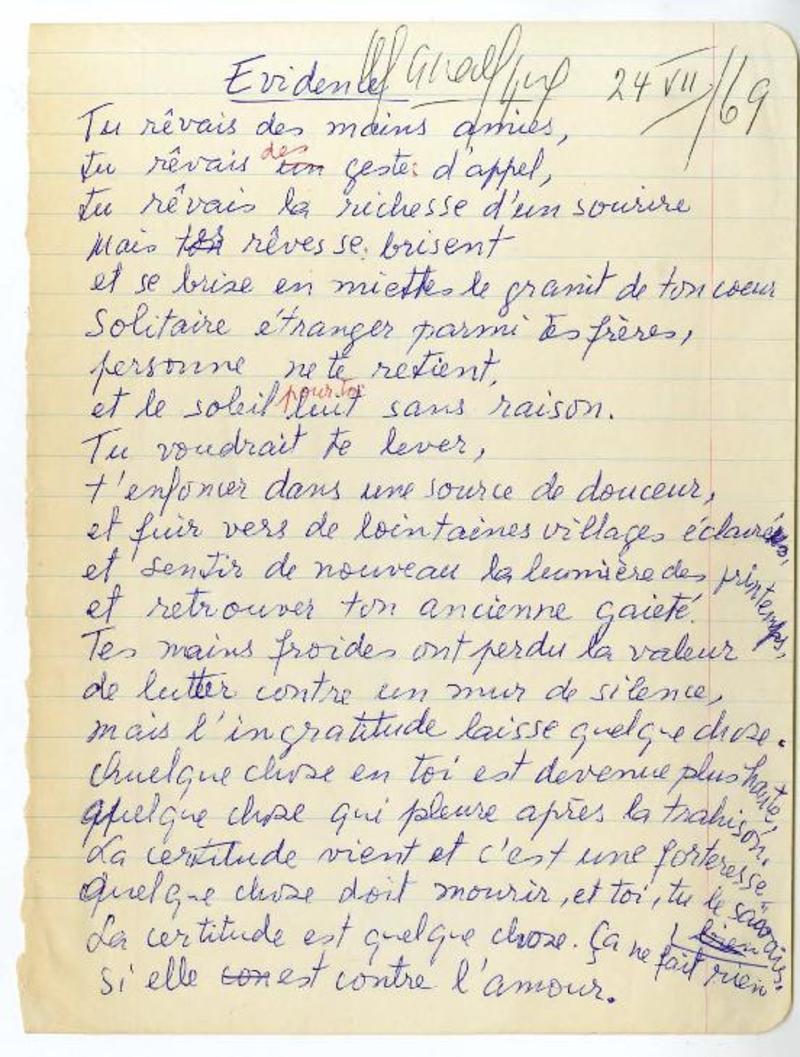 Evidence 24 VII/69
Tu rêvais des mains amies,
tu rêvais des un gestes d'appel,
tu rêvais la richesse d'un sourire
Mais tes rêves se brisent
et se brise en miettes le granit de ton coeur
Solitaire étranger parmi tes frères,
personne ne te retient,
et le soleil pour toi luit sans raison.
Tu voudrait te lever,
t'enfoncer dans une source de douceur,
et fuir vers de lointaines villages éclairés,
et sentir de nouveau la lumière des printemps,
et retrouver ton ancienne gaieté.
Tes mains froides ont perdu la valeur
de lutter contre un mur de silence,
mais l'ingratitude laisse quelque chose.
Quelque chose en toi est devenue plus haute,
quelque chose qui pleure après la trahison.
La certitude vient et c'est une forteresse
Quelque chose doit mourir, et toi, tu le savais.
La certitude est quelque chose. Ça ne fait bien rien
si elle con est contre l'amour.